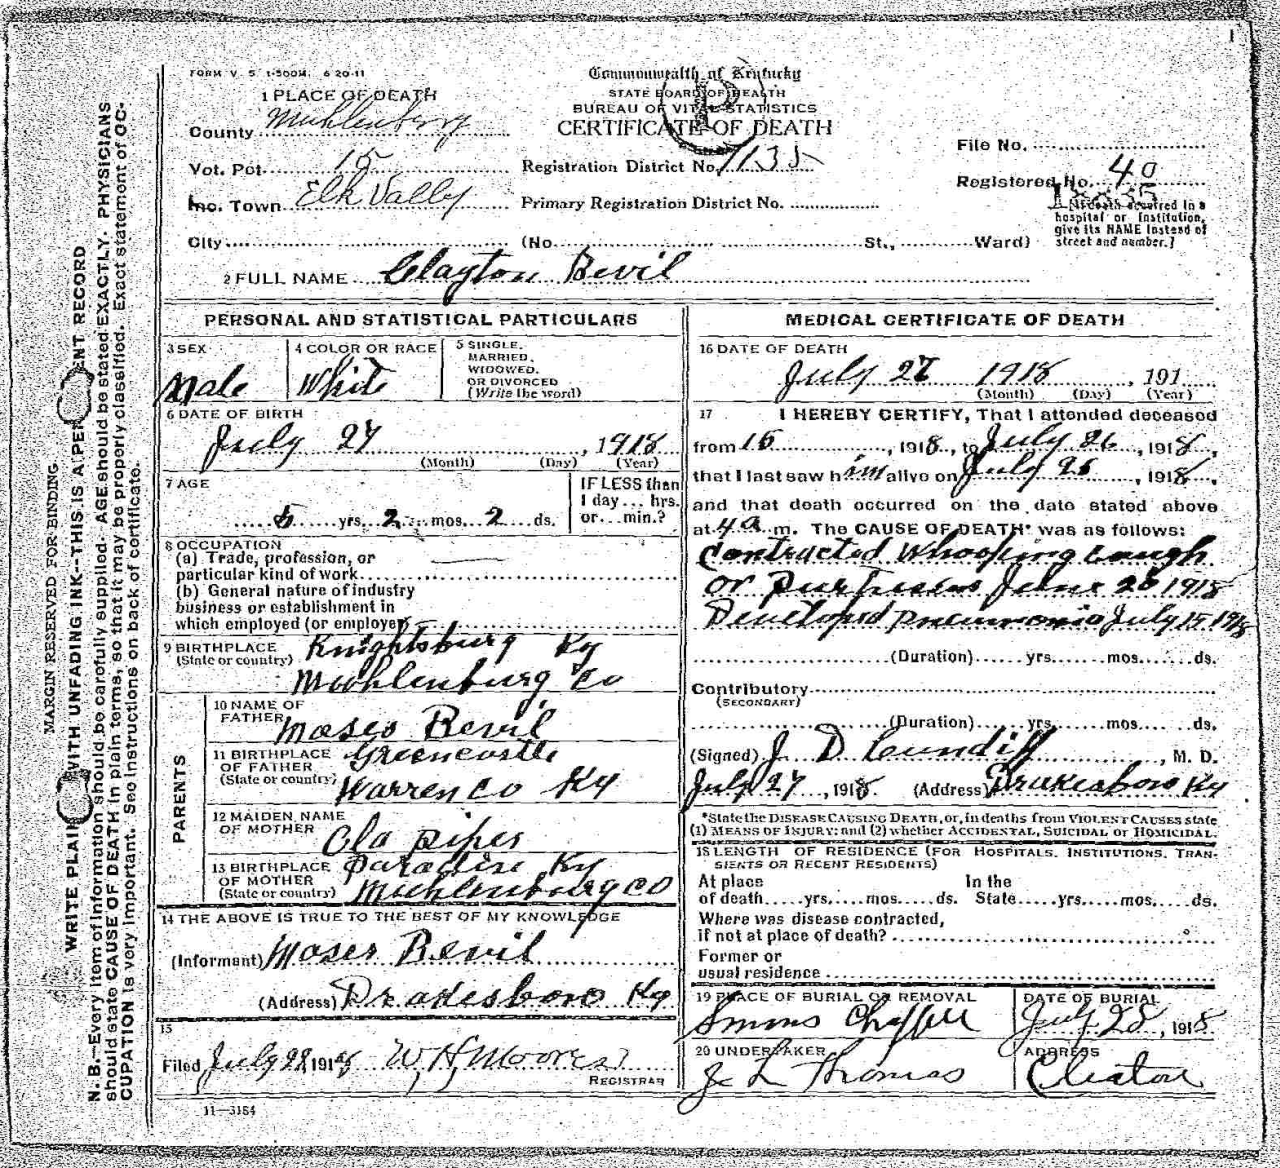 1
FORM V. S. 1-500M. 6 20-11
Commonwealth of Kentucky
STATE BOARD OF HEALTH
BUREAU OF VITAL STATISTICS
CERTIFICATE OF DEATH
1 PLACE OF DEATH
County Muhlenberg
Vot. Pct. 15
Registration District No. 1135
File No.
Registered No. 40
Inc. Town Elk Vally
Primary Registration District No.
[If death occurred in a
hospital or Institution,
give its NAME instead of
street and number.]
City (No. St., Ward)
2 FULL NAME Clayton Bevil
PERSONAL AND STATISTICAL PARTICULARS
3 SEX
Male
4 COLOR OR RACE
White
5 SINGLE.
MARRIED.
WIDOWED.
OR DIVORCED
(Write the word)
6 DATE OF BIRTH
July 27, 1918
(Month) (Day) (Year)
7 AGE
5 yrs. 2 mos. 2 ds.
IF LESS than
1 day ... hrs.
or ... min.?
8 OCCUPATION
(a) Trade, profession, or
particular kind of work
(b) General nature of industry
business or establishment in
which employed (or employer)
9 BIRTHPLACE
(State or country)
Knightsburg Ky
Muhlenburg Co
PARENTS
10 NAME OF
FATHER
Moses Bevil
11 BIRTHPLACE
OF FATHER
(State or country)
Greencastle
Warren Co Ky
12 MAIDEN NAME
OF MOTHER
Ola Piper
13 BIRTHPLACE
OF MOTHER
(State or country)
Paradise Ky
Muchlenburg CO
14 THE ABOVE IS TRUE TO THE BEST OF MY KNOWLEDGE
(Informant) Moser Bevil
(Address) Drakesboro Ky
15
Filed July 28 1918 W H Moores
REGISTRAR
11-3184
MEDICAL CERTIFICATE OF DEATH
16 DATE OF DEATH
July 27 1918, 191
(Month) (Day) (Year)
17 I HEREBY CERTIFY, That I attended deceased
from 15, 1918, to July 26, 1918,
that I last saw him alive on July 25, 1918,
and that death occurred on the date stated above
at 4 a m. The CAUSE OF DEATH* was as follows:
Contracted Whooping Cough
or Purtusius June 20 1918
Developed Pneumonia July 15 1918
(Duration) yrs. mos. ds.
Contributory
(SECONDARY)
(Duration) yrs. mos. ds.
(Signed) J. D Cundiff, M. D.
July 27, 1918. (Address) Drakesboro Ky
*State the DISEASE CAUSING DEATH, or, in deaths from VIOLENT CAUSES state
(1) MEANS OF INJURY; and (2) whether ACCIDENTAL, SUICIDAL or HOMICIDAL.
18 LENGTH OF RESIDENCE (FOR HOSPITALS, INSTITUTIONS, TRAN-
SIENTS OR RECENT RESIDENTS)
At place
of death yrs. mos. ds.
In the
State yrs. mos. ds.
Where was disease contracted,
if not at place of death?
Former or
usual residence
19 PLACE OF BURIAL OR REMOVAL
Simms Chappell
DATE OF BURIAL
July 28, 1918
20 UNDERTAKER
J L Thomas
ADDRESS
Cleaton
MARGIN RESERVED FOR BINDING
WRITE PLAINLY WITH UNFADING INK--THIS IS A PERMANENT RECORD
N. B.--Every item of information should be carefully supplied. AGE should be stated EXACTLY. PHYSICIANS
should state CAUSE OF DEATH in plain terms, so that it may be properly classified. Exact statement of OC-
CUPATION is very important. See instructions on back of certificate.